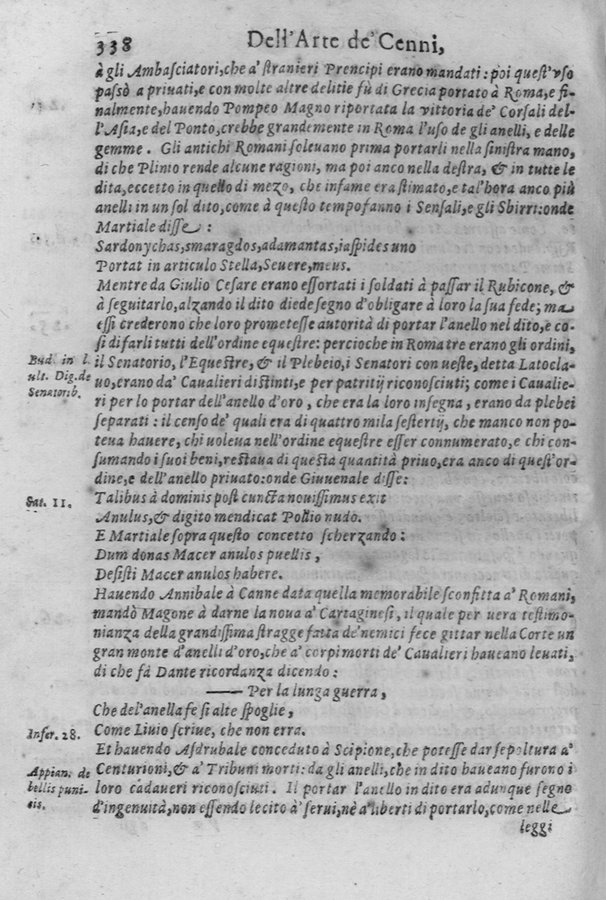 338 Dell'Arte de' Cenni,
à gli Ambaſciatori,che a' ſtranieri Prencipi erano mandati: poi queſt'vſo
paſsò a priuati,e con molte altre delitie fù di Grecia portato à Roma,e fi-
nalmente,hauendo Pompeo Magno riportata la vittoria de' Corſali del-
l'Aſia,e del Ponto,crebbe grandemente in Roma l'uſo de gli anelli, e delle
gemme. Gli antichi Romani ſoleuano prima portarli nella ſiniſtra mano,
di che Plinio rende alcune ragioni, ma poi anco nella deſtra, & in tutte le
dita,eccetto in quello di mezo, che infame era ſtimato,e tal'hora anco più
anelli in un ſol dito,come à queſto tempo fanno i Senſali,e gli Sbirri:onde
Martiale diſſe:
Sardonychas,smaragdos,adamantas,iaſpides uno
Portat in articulo Stella,Seuere,meus.
Mentre da Giulio Ceſare erano eſſortati i ſoldati à paſſar il Rubicone, &
à ſeguitarlo,alzando il dito diede ſegno d'obligare à loro la sua fede; ma
eſſi crederono che loro prometeſſe autorità di portar l'anello nel dito,e co-
ſi di farli tutti dell'ordine equeſtre: percioche in Roma tre erano gli ordini,
Bud. in l. il Senatorio, l'Equeſtre, & il Plebeio,i Senatori con ueſte, detta Latocla-
ult. Dig. de uo,erano da' Caualieri diſtinti,e per patritij riconoſciuti; come i Caualie-
Senatorib. ri per lo portar dell'anello d'oro, che era la loro inſegna, erano da plebei
ſeparati: il cenſo de' quali era di quattro mila ſeſtertij, che manco non po-
teua hauere, chi uoleua nell'ordine equeſtre eſſer connumerato,e chi con-
ſumando i ſuoi beni,reſtaua di queſta quantità priuo,era anco di queſt'or-
dine,e dell'anello priuato:onde Giuuenale diſſe:
Sat. 11. Talibus à dominis poſt cuncta nouiſſimus exit
Anulus,& digito mendicat Pollio nudo.
E Martiale ſopra queſto concetto ſcherzando:
Dum donas Macer anulos puellis,
Deſiſti Macer anulos habere.
Hauendo Annibale à Canne data quella memorabile sconfitta a' Romani,
mandò Magone à darne la noua a' Cartagineſi, il quale per uera teſtimo-
nianza della grandiſſima ſtragge fatta de'nemici fece gittar nella Corte un
gran monte d'anelli d'oro,che a' corpi morti de' Caualieri haueano leuati,
di che fà Dante ricordanza dicendo:
—— Per la lunga guerra,
Che del'anella fe ſi alte ſpoglie,
Infer. 28. Come Liuio ſcriue, che non erra.
Et hauendo Aſdrubale conceduto à Scipione,che poteſſe dar ſepoltura a'
Appian. de Centurioni,& a' Tribuni morti: da gli anelli,che in dito haueano furono i
bellis puni- loro cadaueri riconoſciuti. Il portar l'anello in dito era adunque ſegno
cis. d'ingenuità,non eſſendo lecito à ſerui,nè a'liberti di portarlo,come nelle
leggi